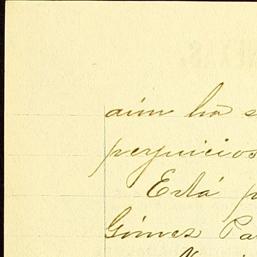 aún ha s
perjuicios
Está p
Gómez Pa